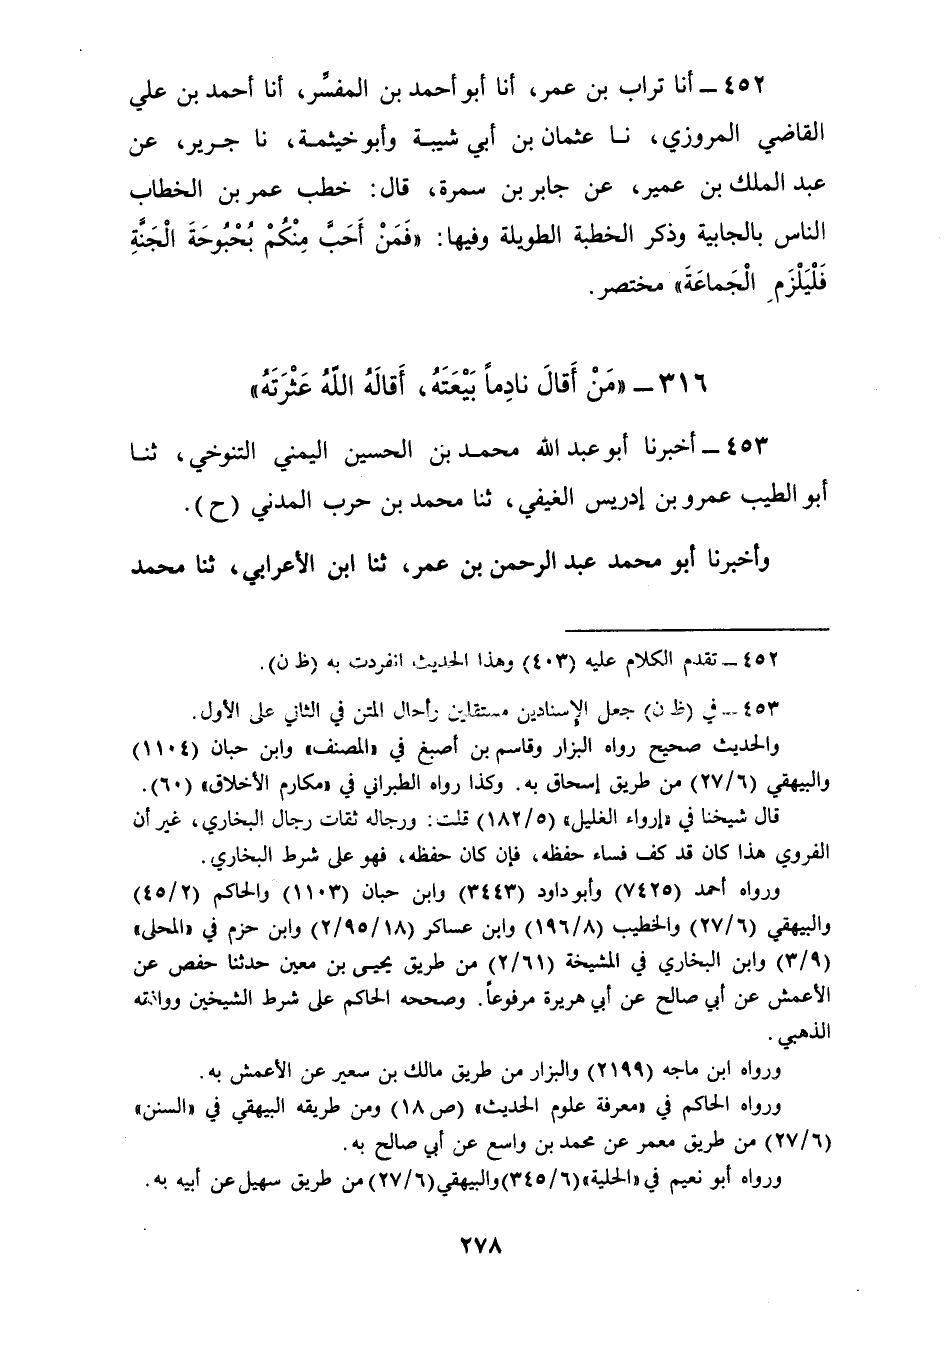 ٤٥٢ ــ أنا تراب بن عمر، أنا أبو أحمد بن المفسَّر، أنا أحمد بن علي
القاضي المروزي، نـا عثمان بن أبي شيبـة وأبو خيثمـة، نا جـرير، عن
عبد الملك بن عمير، عن جابر بن سمرة، قال: خطب عمر بن الخطاب
الناس بالجابية وذكر الخطبة الطويلة وفيها: «فَمَنْ أَحَبَّ مِنْكُمْ بُحْبُوحَةَ الْجَنَّةِ
فَلْيَلْزَمِ الْجَماعَةَ» مختصر.
٣١٦ ــ «مَنْ أَقالَ نادِماً بَيْعَتَهُ، أَقالَهُ اللَّهُ عَثْرَتَهُ»
٤٥٣ ــ أخبرنا أبو عبد الله محمـد بن الحسين اليمني التنوخي، ثنـا
أبو الطيب عمرو بن إدريس الغيفي، ثنا محمد بن حرب المدني (ح).
وأخبرنا أبو محمد عبد الرحمن بن عمر، ثنا ابن الأعرابي، ثنا محمد
٤٥٢ ــ تقدم الكلام عليه (٤٠٣) وهذا الحديث انفردت به (ظ ن).
٤٥٣ ــ في (ظ ن) جعل الإسنادين مستقلين وأحال المتن في الثاني على الأول.
والحديث صحيح رواه البزار وقاسم بن أصبغ في «المصنف» وابن حبان (١١٠٤)
والبيهقي (٢٧/٦) من طريق إسحاق به. وكذا رواه الطبراني في «مكارم الأخلاق» (٦٠).
قال شيخنا في «إرواء الغليل» (١٨٢/٥) قلت: ورجاله ثقات رجال البخاري، غير أن
الفروي هذا كان قد كف فساء حفظه، فإن كان حفظه، فهو على شرط البخاري.
ورواه أحمد (٧٤٢٥) وأبو داود (٣٤٤٣) وابن حبان (١١٠٣) والحاكم (٤٥/٢)
والبيهقي (٢٧/٦) والخطيب (١٩٦/٨) وابن عساكر (٢/٩٥/١٨) وابن حزم في «المحلى»
(٣/٩) وابن البخاري في المشيخة (٢/٦١) من طريق يحيى بن معين حدثنا حفص عن
الأعمش عن أبي صالح عن أبي هريرة مرفوعاً. وصححه الحاكم على شرط الشيخين ووافقه
الذهبي.
ورواه ابن ماجه (٢١٩٩) والبزار من طريق مالك بن سعير عن الأعمش به.
ورواه الحاكم في «معرفة علوم الحديث» (ص ١٨) ومن طريقه البيهقي في «السنن»
(٢٧/٦) من طريق معمر عن محمد بن واسع عن أبي صالح به.
ورواه أبو نعيم في «الحلية» (٣٤٥/٦) والبيهقي (٢٧/٦) من طريق سهيل عن أبيه به.
٢٧٨